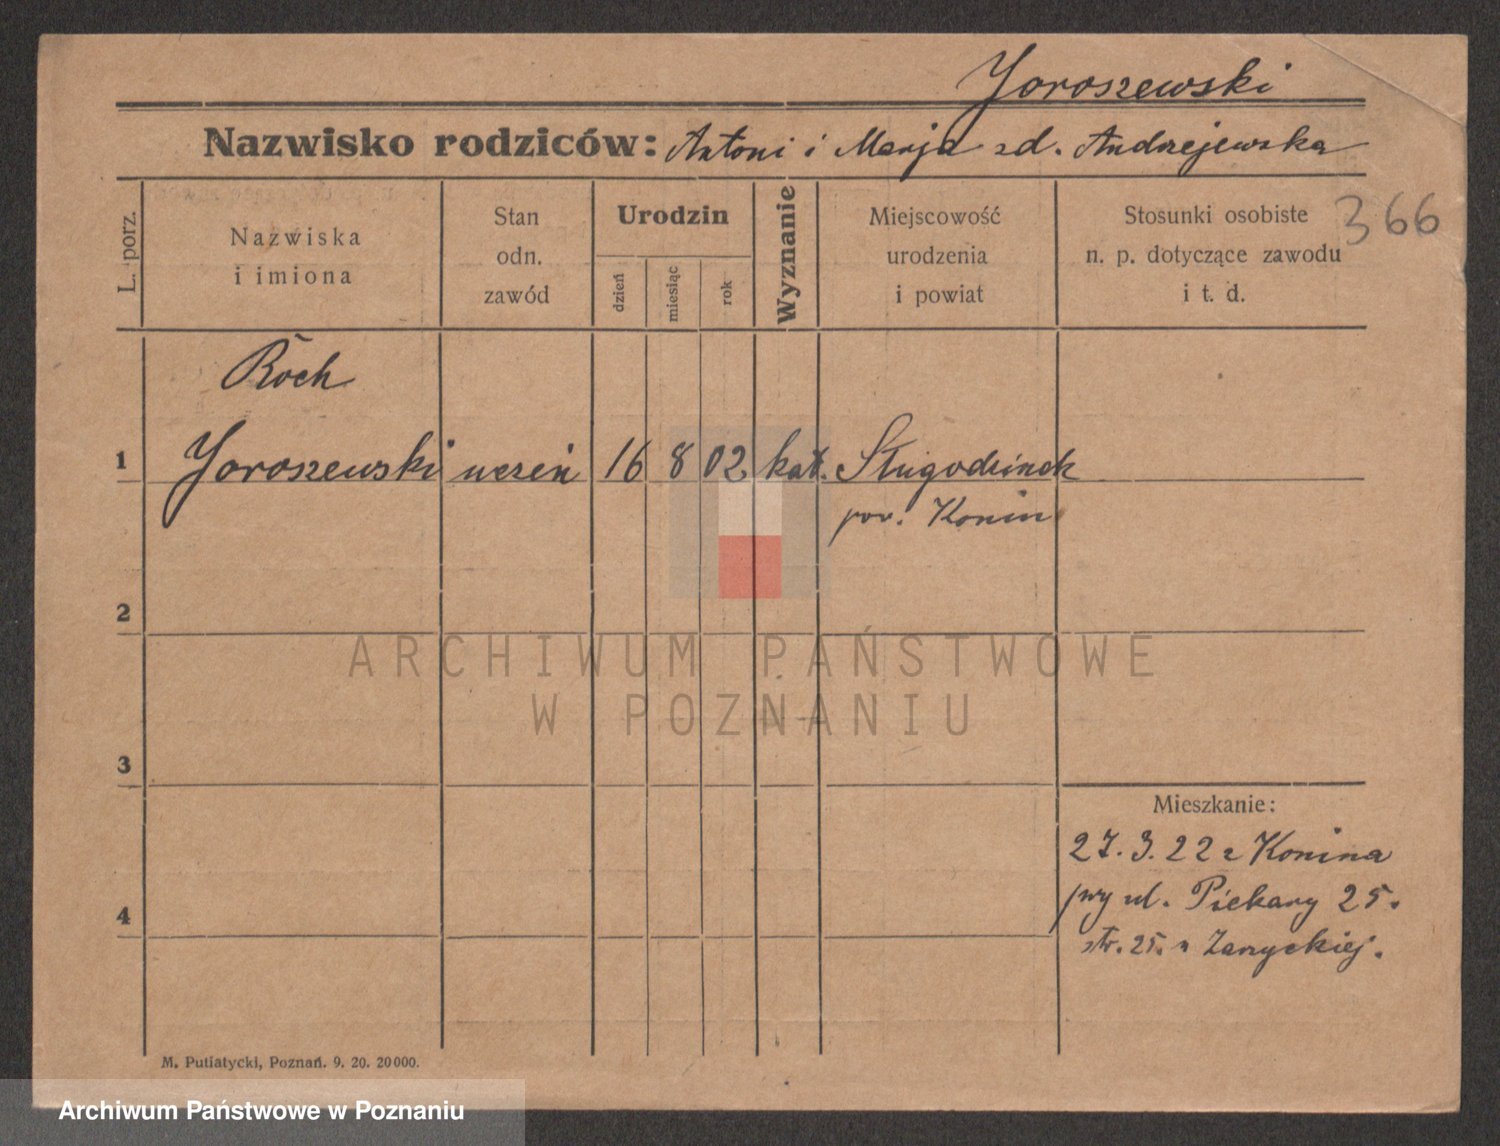 Joroszewski
Nazwisko rodziców: Antoni i Marja zd. Andrzejewska
L. porz.
Nazwiska
i imiona
Stan
odn.
zawód
Urodzin
dzień
miesiąc
rok
Wyznanie
Miejscowość
urodzenia
i powiat
Stosunki osobiste
n. p. dotyczące zawodu
i t. d.
366
Roch
1 Joroszewski uczeń 16 8 02 kat.
pow. Konin
2
ARCHIWUM PAŃSTWOWE
W POZNANIU
3
4
Mieszkanie:
27.3.22 z Konina
przy ul. Piekary 25.
str. 25. u Zaryckiej.
M. Putiatycki, Poznań. 9. 20. 20000.
Archiwum Państwowe w Poznaniu